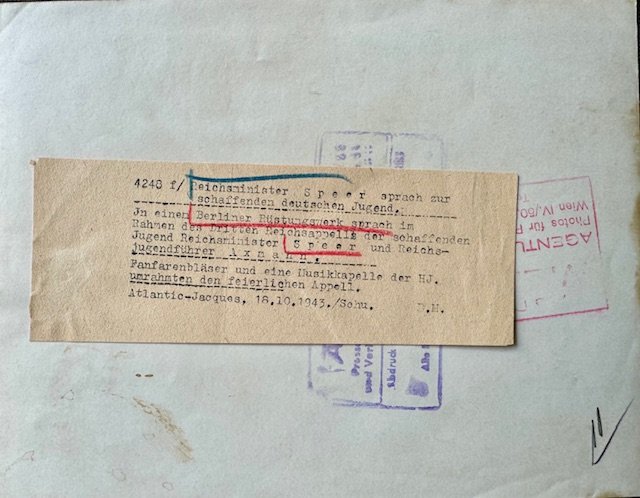 4248 f/ Reichsminister S p e e r sprach zur
schaffenden deutschen Jugend.
Jn einem Berliner Rüstungswerk sprach im
Rahmen des Dritten Reichsappells der schaffenden
Jugend Reichsminister S p e e r und Reichs-
jugendführer A x m a n n.
Fanfarenbläser und eine Musikkapelle der HJ.
umrahmten den feierlichen Appell.
Atlantic-Jacques, 18.10.1943./Schu.
AGENTU
Photos für P
Wien IV./50,
Presse
und Ver
Abdruck
Alle